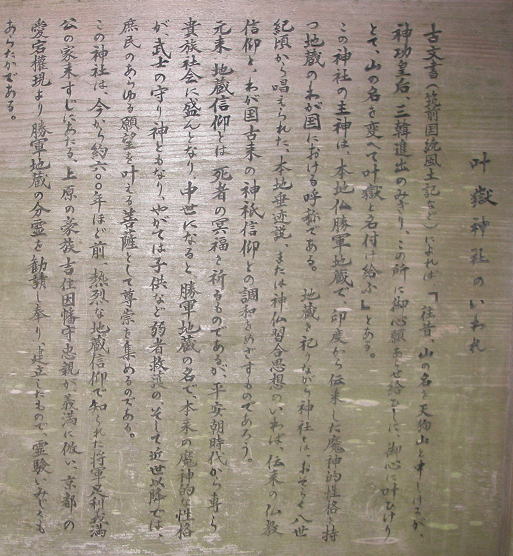 叶嶽神社のいわれ
古文書(筑前国続風土記など)によれば、「往昔、山の名を天狗山と申しけるが、
神功皇后、三韓進出のみぎり、この所に御心願あらせ給ひしに、御心に叶ひけり
とて、山の名を変へて叶嶽と名付け給ふ」とある。
この神社の主神は、本地仏勝軍地蔵で、印度から伝来した魔神的性格を持
つ地蔵のわが国における呼称である。地蔵を祀りながら神社とは、おそらく八世
紀頃から唱えられた、本地垂迹説、または神仏習合思想のいわば、伝来の仏教
信仰と、わが国古来の神祇信仰との調和をめざすものであろう。
元来、地蔵信仰とは、死者の冥福を祈るものであるが、平安朝時代から専ら
貴族社会に盛んとなり、中世になると勝軍地蔵の名で、本来の魔神的な性格
が武士の守り神ともなり、やがては子供など弱者救済の、そして近世以降では、
庶民のあらゆる願望を叶える菩薩として尊崇を集めるのである。
この神社は、今から約六〇〇年ほど前、熱烈な地蔵信仰で知られた将軍足利義満
公の家来すじにあたる、上原の豪族、吉住因幡守忠親が義満に倣い、京都の
愛宕権現より勝軍地蔵の分霊を勧請し奉り、建立したもので、霊験いみじくも
あらたかである。